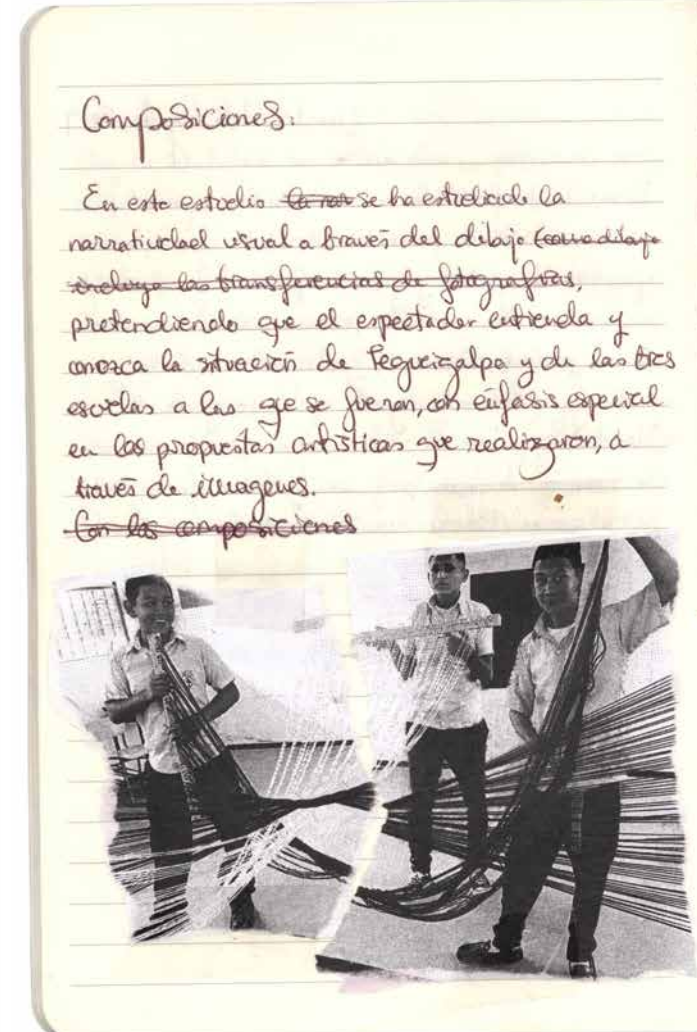 Composiciones.
En este estudio la nar se ha estudiado la
narratividad visual a través del dibujo (como dibujo
incluyo las transferencias de fotografías,
pretendiendo que el espectador entienda y
conozca la situación de Tegucigalpa y de las tres
escuelas a las qe se fueron, con énfasis especial
en las propuestas artísticas que realizaron, a
través de imagenes.
Con las composiciones